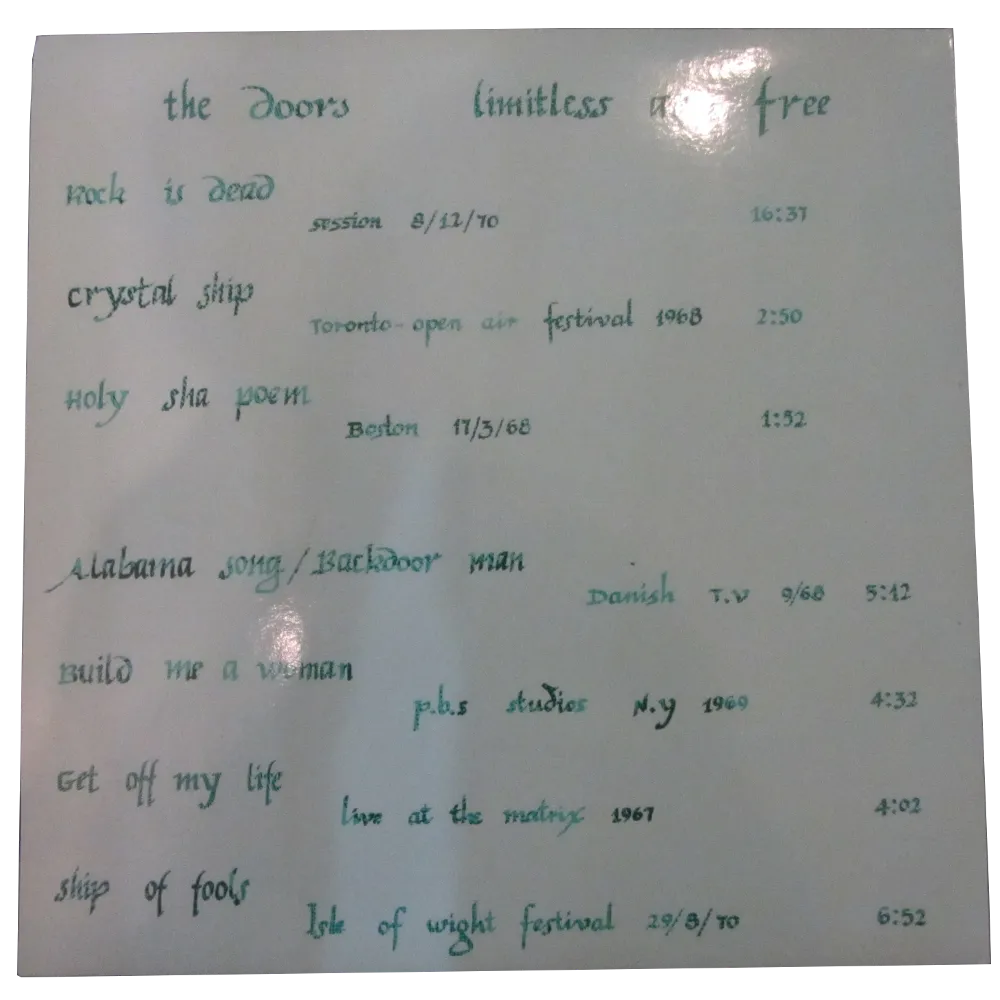 the doors limitless free
Rock is dead
session 8/12/70 16:37
crystal ship
Toronto - open air festival 1968 2:50
Holy sha poem
Boston 17/3/68 1:32
Alabama song / Backdoor man
Danish T.V 9/68 5:12
Build me a woman
p.b.s studios N.y 1969 4:32
Get off my life
live at the matrix 1967 4:02
ship of fools
Isle of wight festival 29/8/70 6:52